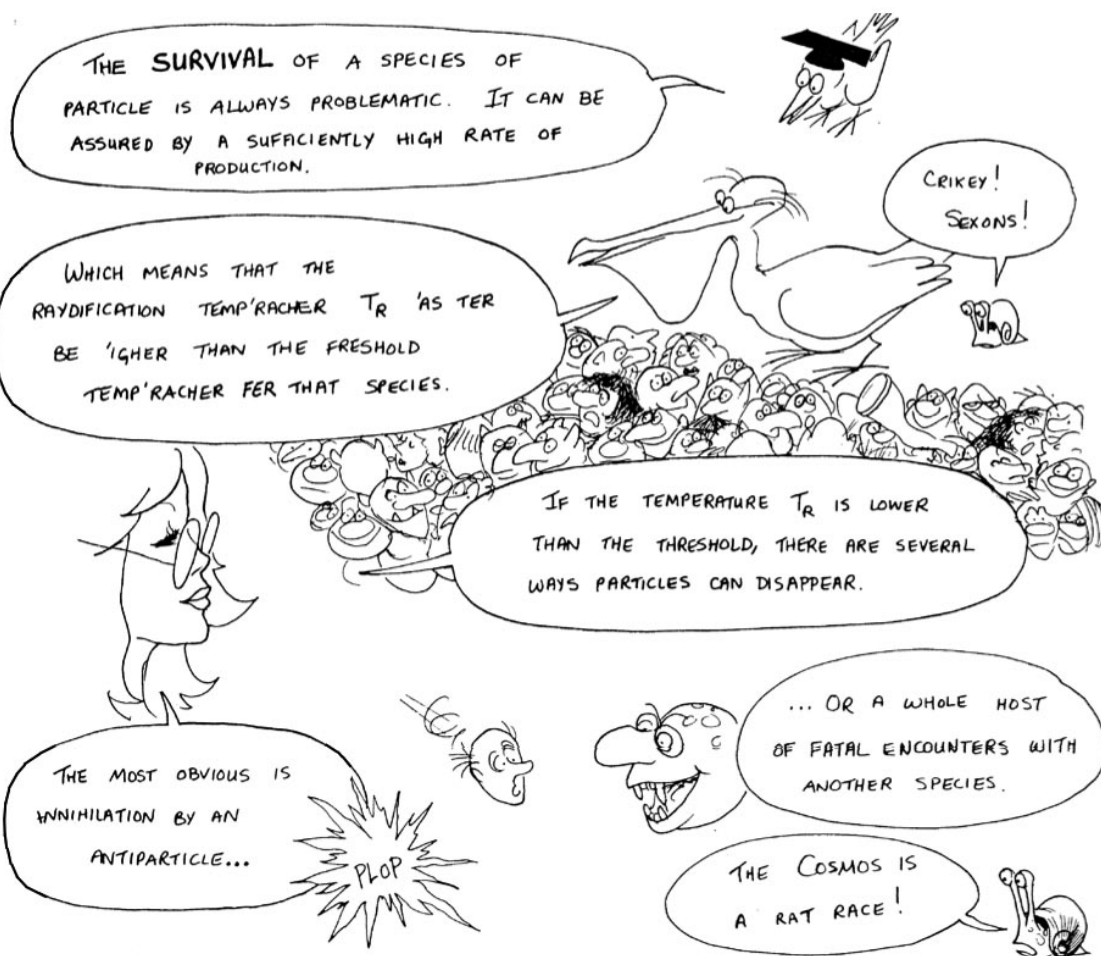 THE SURVIVAL OF A SPECIES OF
PARTICLE IS ALWAYS PROBLEMATIC. IT CAN BE
ASSURED BY A SUFFICIENTLY HIGH RATE OF
PRODUCTION.
CRIKEY!
SEXONS!
WHICH MEANS THAT THE
RAYDIFICATION TEMP'RACHER TR 'AS TER
BE 'IGHER THAN THE FRESHOLD
TEMP'RACHER FER THAT SPECIES.
IF THE TEMPERATURE TR IS LOWER
THAN THE THRESHOLD, THERE ARE SEVERAL
WAYS PARTICLES CAN DISAPPEAR.
THE MOST OBVIOUS IS
ANNIHILATION BY AN
ANTIPARTICLE...
PLOP
... OR A WHOLE HOST
OF FATAL ENCOUNTERS WITH
ANOTHER SPECIES.
THE COSMOS IS
A RAT RACE!